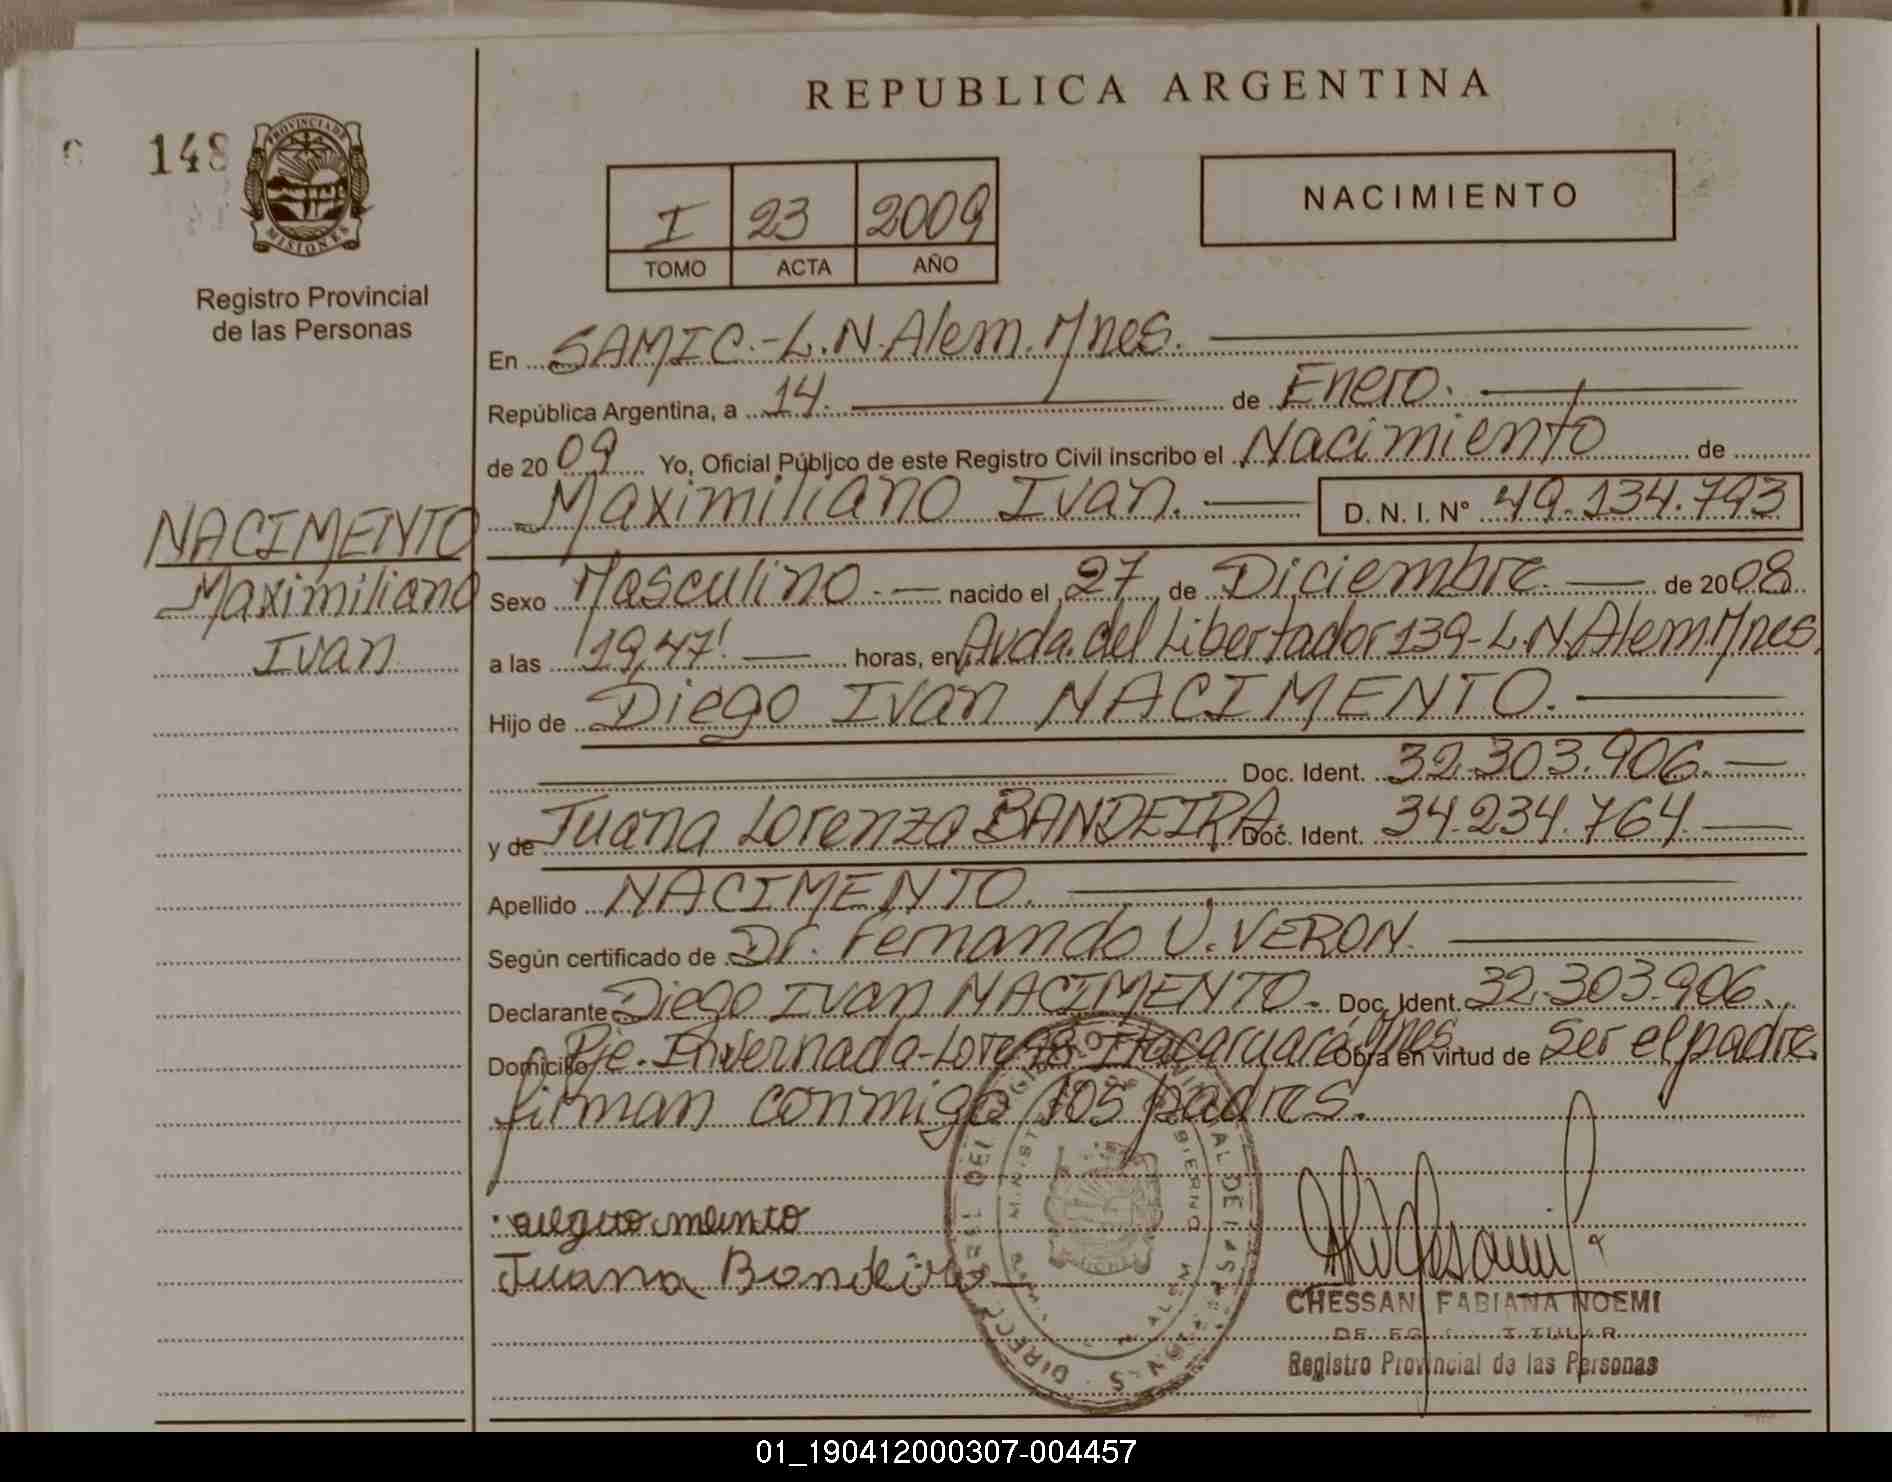 REPUBLICA ARGENTINA
148
PROVINCIA DE
MISIONES
Registro Provincial
de las Personas
I 23 2009
TOMO ACTA AÑO
NACIMIENTO
En SAMIC.-L.N.Alem.Mnes.
República Argentina, a 14. de Enero.
de 2009 Yo, Oficial Público de este Registro Civil inscribo el Nacimiento de
Maximiliano Ivan. D. N. I. N° 49.134.793
NACIMENTO
Maximiliano
Ivan
Sexo Masculino.- nacido el 27 de Diciembre. de 2008
a las 19,47' horas, en Avda. del Libertador 139-L.N.Alem.Mnes.
Hijo de Diego Ivan NACIMENTO.
Doc. Ident. 32.303.906.
y de Juana Lorenza BANDEIRA. Doc. Ident. 34.234.764.
Apellido NACIMENTO.
Según certificado de Dr. Fernando U. VERON.
Declarante Diego Ivan NACIMENTO. Doc. Ident. 32.303.906.
Domicilio Pje. Invernada-Loreto Itacaruaré, Mnes. Obra en virtud de Ser el padre.
firman conmigo los padres.
mento
Juana Bandeira
CHESSANI FABIANA NOEMI
Registro Provincial de las Personas
01_190412000307-004457